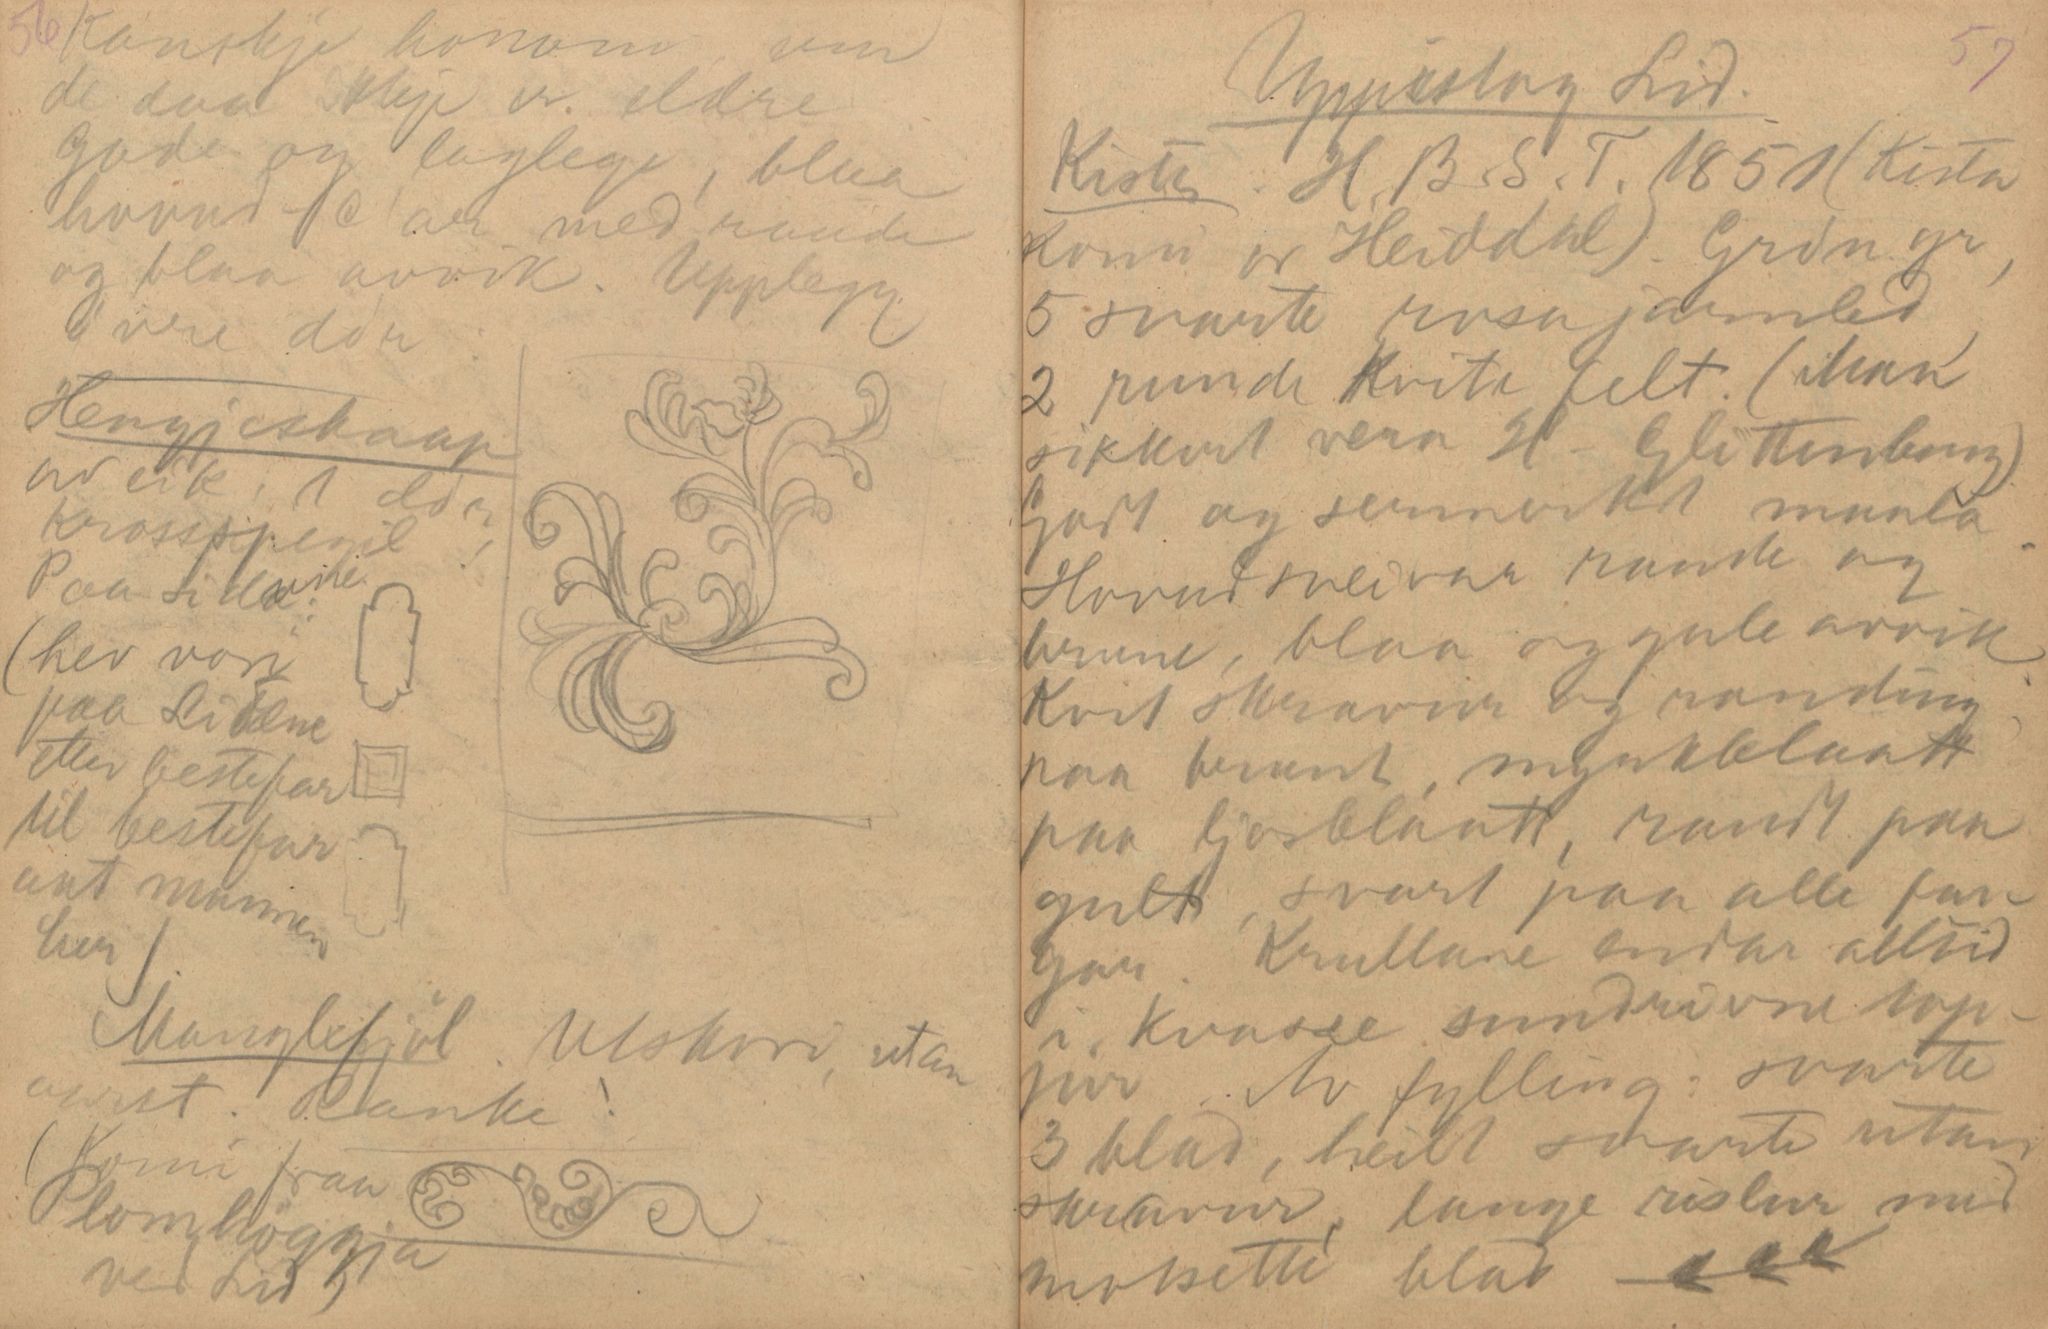 56
Kanskje honom, um
de daa ikkje er eldre
Gode og laglege, blaa
hovud-C'ar med raude
og blaa avvik. Upplegg
övere dör
Hengjeskaap
av eik, 1 dör,
Krossspegil
Paa sidone:
(hev vori
paa Lidene
etter bestefar
til bestefar
aat mannen
her).
Manglefjöl. Utskori, utan
aarst. Ranke!
(Komi fraa
Plomhöggja
ved Lid)
57
Uppistog Lid.
Kiste. H.B.S.T. 1851 (Kista
komi or Heiddal). Grön gr,
5 svarte rosa jarnled,
2 runde kvite felt. (Maa
sikkert vera H. Glittenberg)
Godt og sermerkt maala
Hovudsveivar raude og
brune, blaa og gule avvik
Kvit skravur og randing
paa brunt, mynkblaatt
paa ljosblaatt, raudt paa
gult, svart paa alle far-
gar. Krullane endar alltid
i kvasse sundrivne top-
par. Av fylling: svarte
3 blad, heilt svarte utan
skravur, lange rislur med
motsette blad